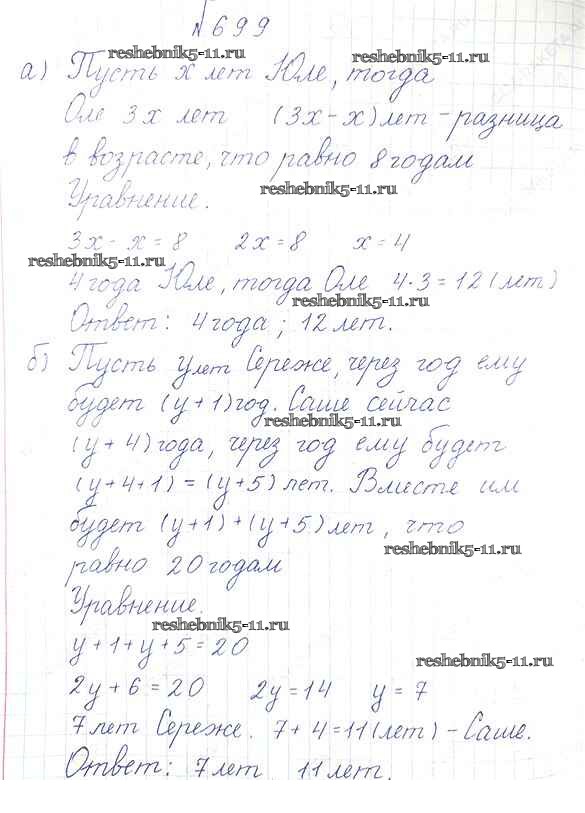 №699
reshebnik5-11.ru reshebnik5-11.ru
а) Пусть x лет Юле, тогда
Оле 3x лет (3x-x) лет - разница
в возрасте, что равно 8 годам
reshebnik5-11.ru
Уравнение.
3x - x = 8 2x = 8 x = 4
reshebnik5-11.ru
4 года Юле, тогда Оле 4·3=12 (лет)
reshebnik5-11.ru
Ответ: 4 года; 12 лет.
б) Пусть y лет Сереже, через год ему
будет (y+1) год. Саше сейчас
reshebnik5-11.ru
(y+4) года, через год ему будет
(y+4+1) = (y+5) лет. Вместе им
будет (y+1)+(y+5) лет, что
reshebnik5-11.ru
равно 20 годам
Уравнение.
reshebnik5-11.ru
y+1+y+5=20
reshebnik5-11.ru
2y+6=20 2y=14 y=7
7 лет Сереже. 7+4=11(лет) - Саше.
Ответ: 7 лет 11 лет.